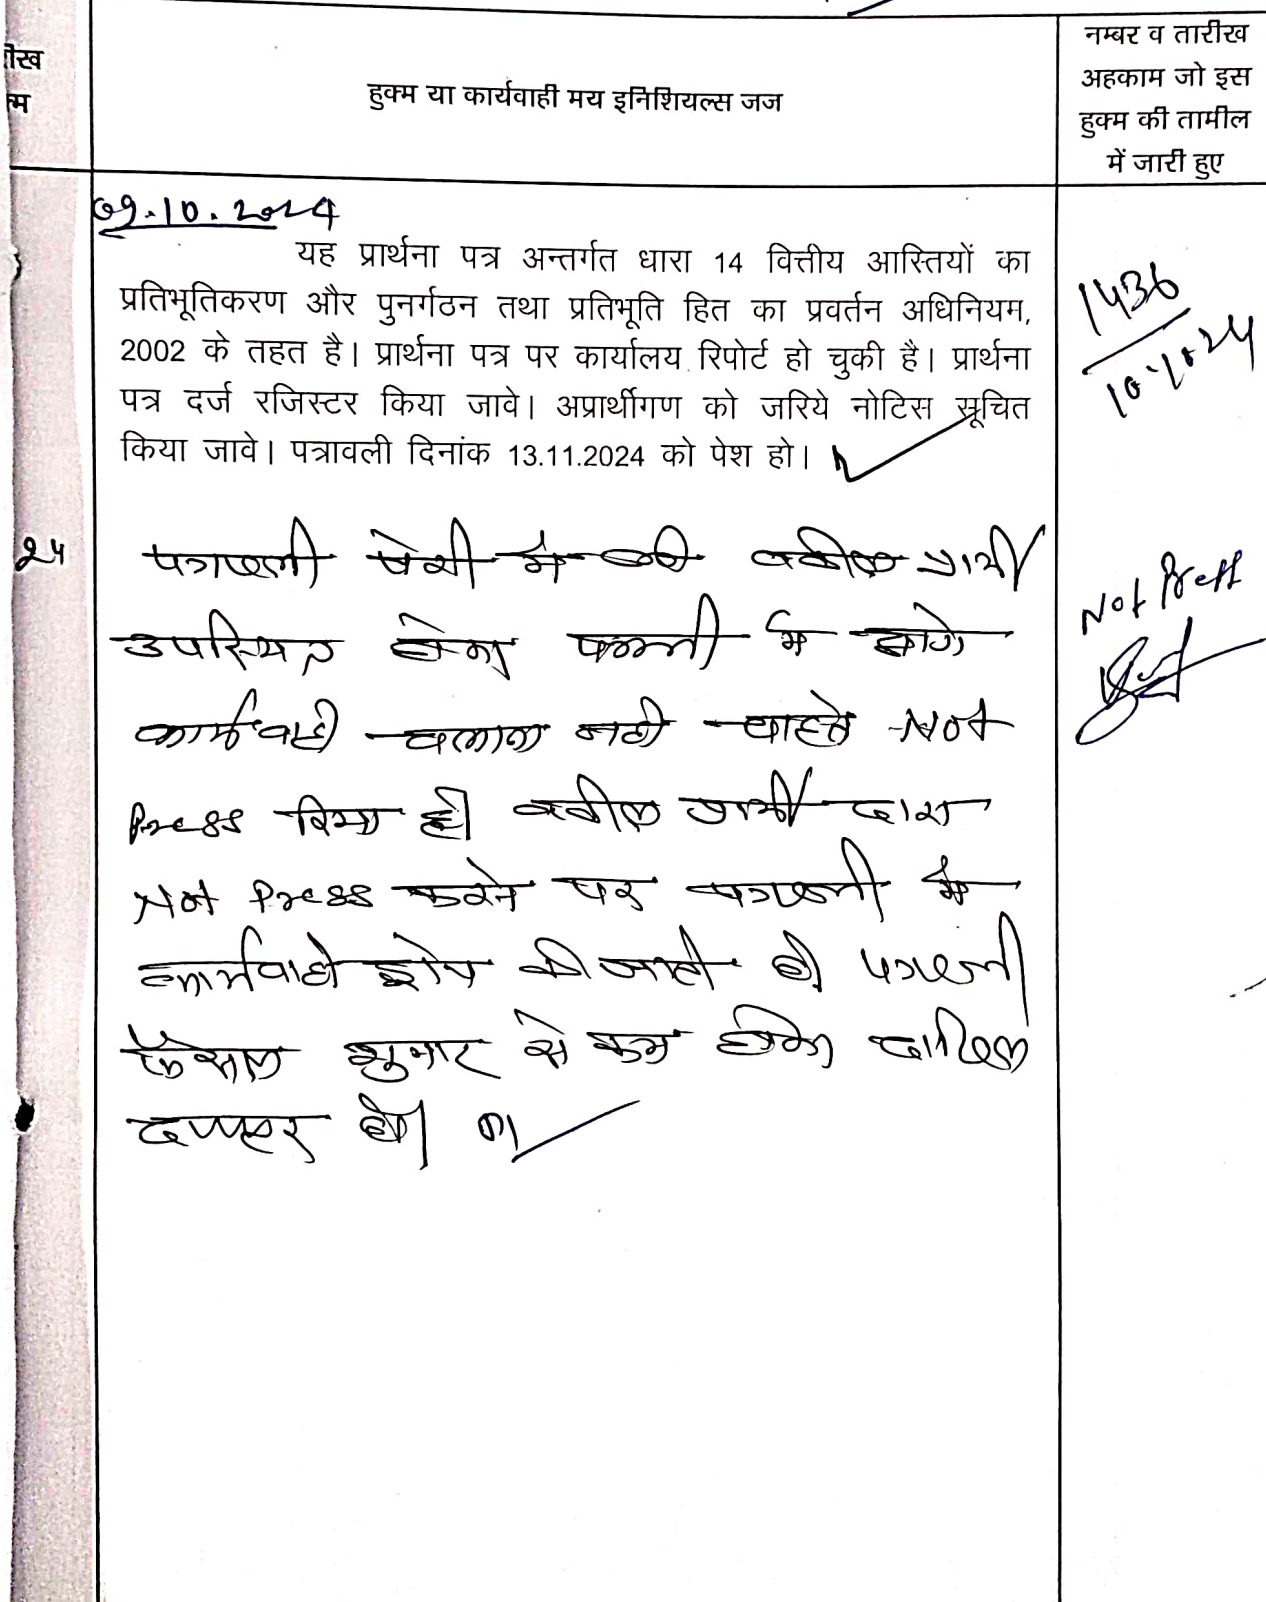 हुक्म या कार्यवाही मय इनिशियल्स जज
नम्बर व तारीख
अहकाम जो इस
हुक्म की तामील
में जारी हुए
09.10.2024
यह प्रार्थना पत्र अन्तर्गत धारा 14 वित्तीय आस्तियों का
प्रतिभूतिकरण और पुनर्गठन तथा प्रतिभूति हित का प्रवर्तन अधिनियम,
2002 के तहत है। प्रार्थना पत्र पर कार्यालय रिपोर्ट हो चुकी है। प्रार्थना
पत्र दर्ज रजिस्टर किया जावे। अप्रार्थीगण को जरिये नोटिस सूचित
किया जावे। पत्रावली दिनांक 13.11.2024 को पेश हो।
1436
24
पत्रावली पेशी में ली वकील प्रार्थी
उपस्थित होकर पत्रावली में आगे
कार्यवाही चलाना नही चाहते Not
Press किया है। वकील प्रार्थी द्वारा
Not Press करने पर पत्रावली में
कार्यवाही ड्रोप की जाती है। पत्रावली
फैसल शुमार से कम होकर दाखिल
दफ्तर हो।
Not Press